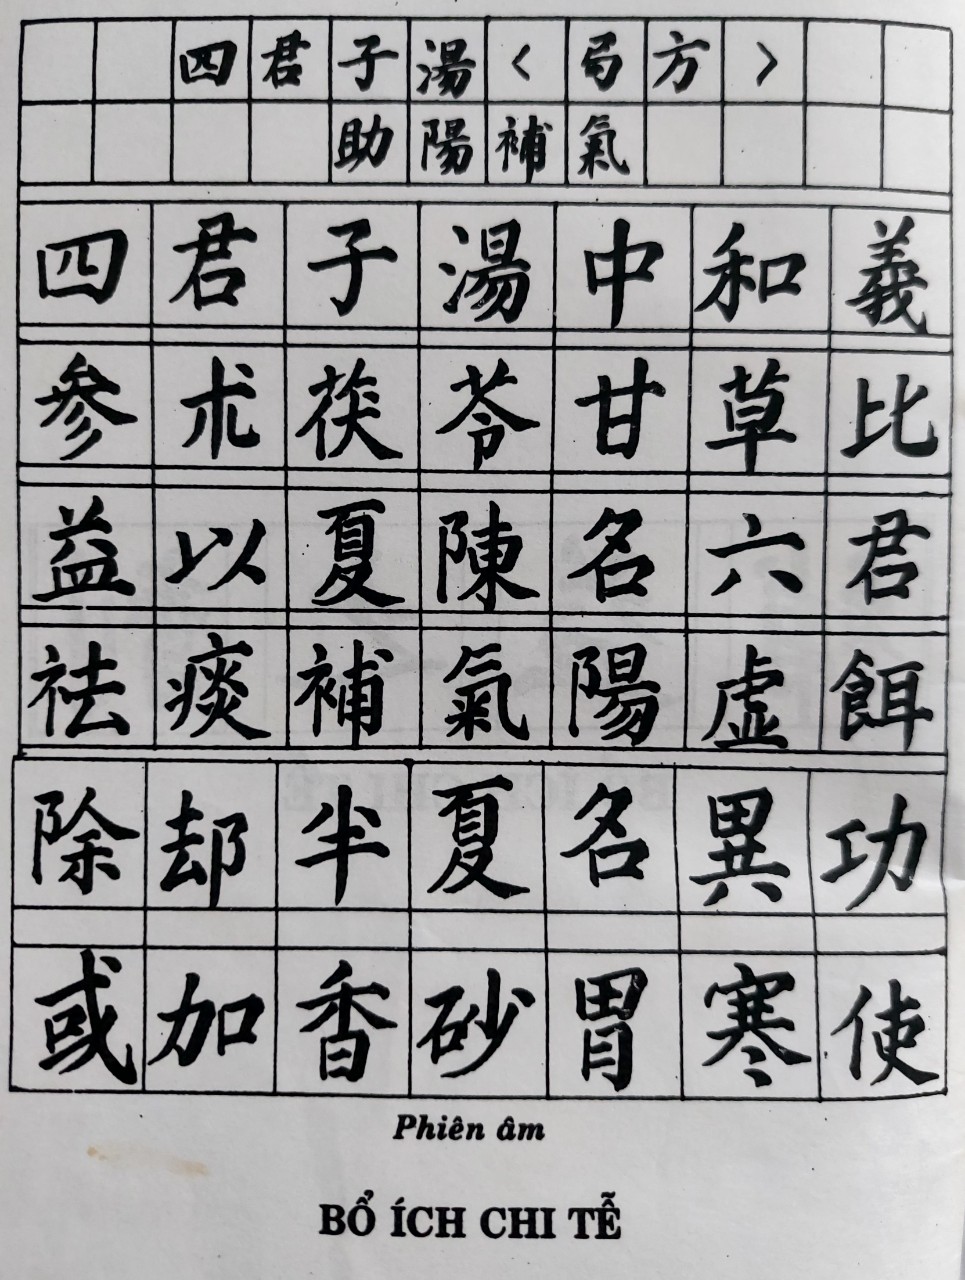 四君子湯＜局方＞
助陽補氣
四君子湯中和義
參朮茯苓甘草比
益以夏陳名六君
祛痰補氣陽虛餌
除却半夏名異功
或加香砂胃寒使
Phiên âm
BỔ ÍCH CHI TỄ